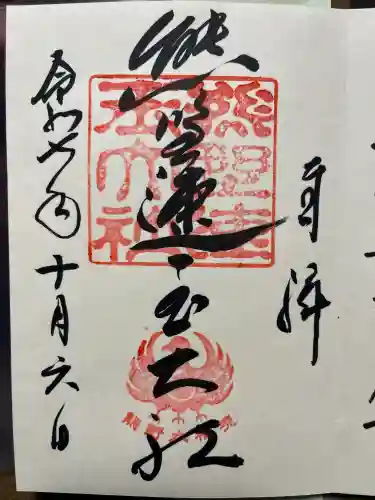 奉拝
熊野速玉大社
令和七年十月六日
熊野速玉大社